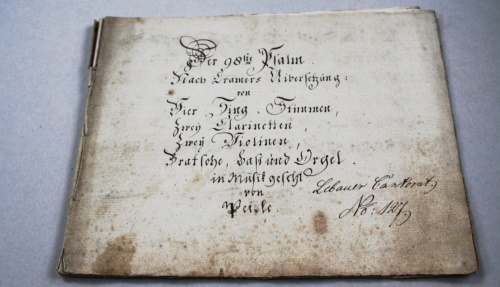 Der 98ste Psalm.
Nach Cramers Uibersetzung:
von
Vier Sing-Stimmen,
Zwey Clarinetten,
Zwey Violinen,
Bratsche, Baß und Orgel.
in Musik gesetzt
von
Lebauer Cantorat
No: 127